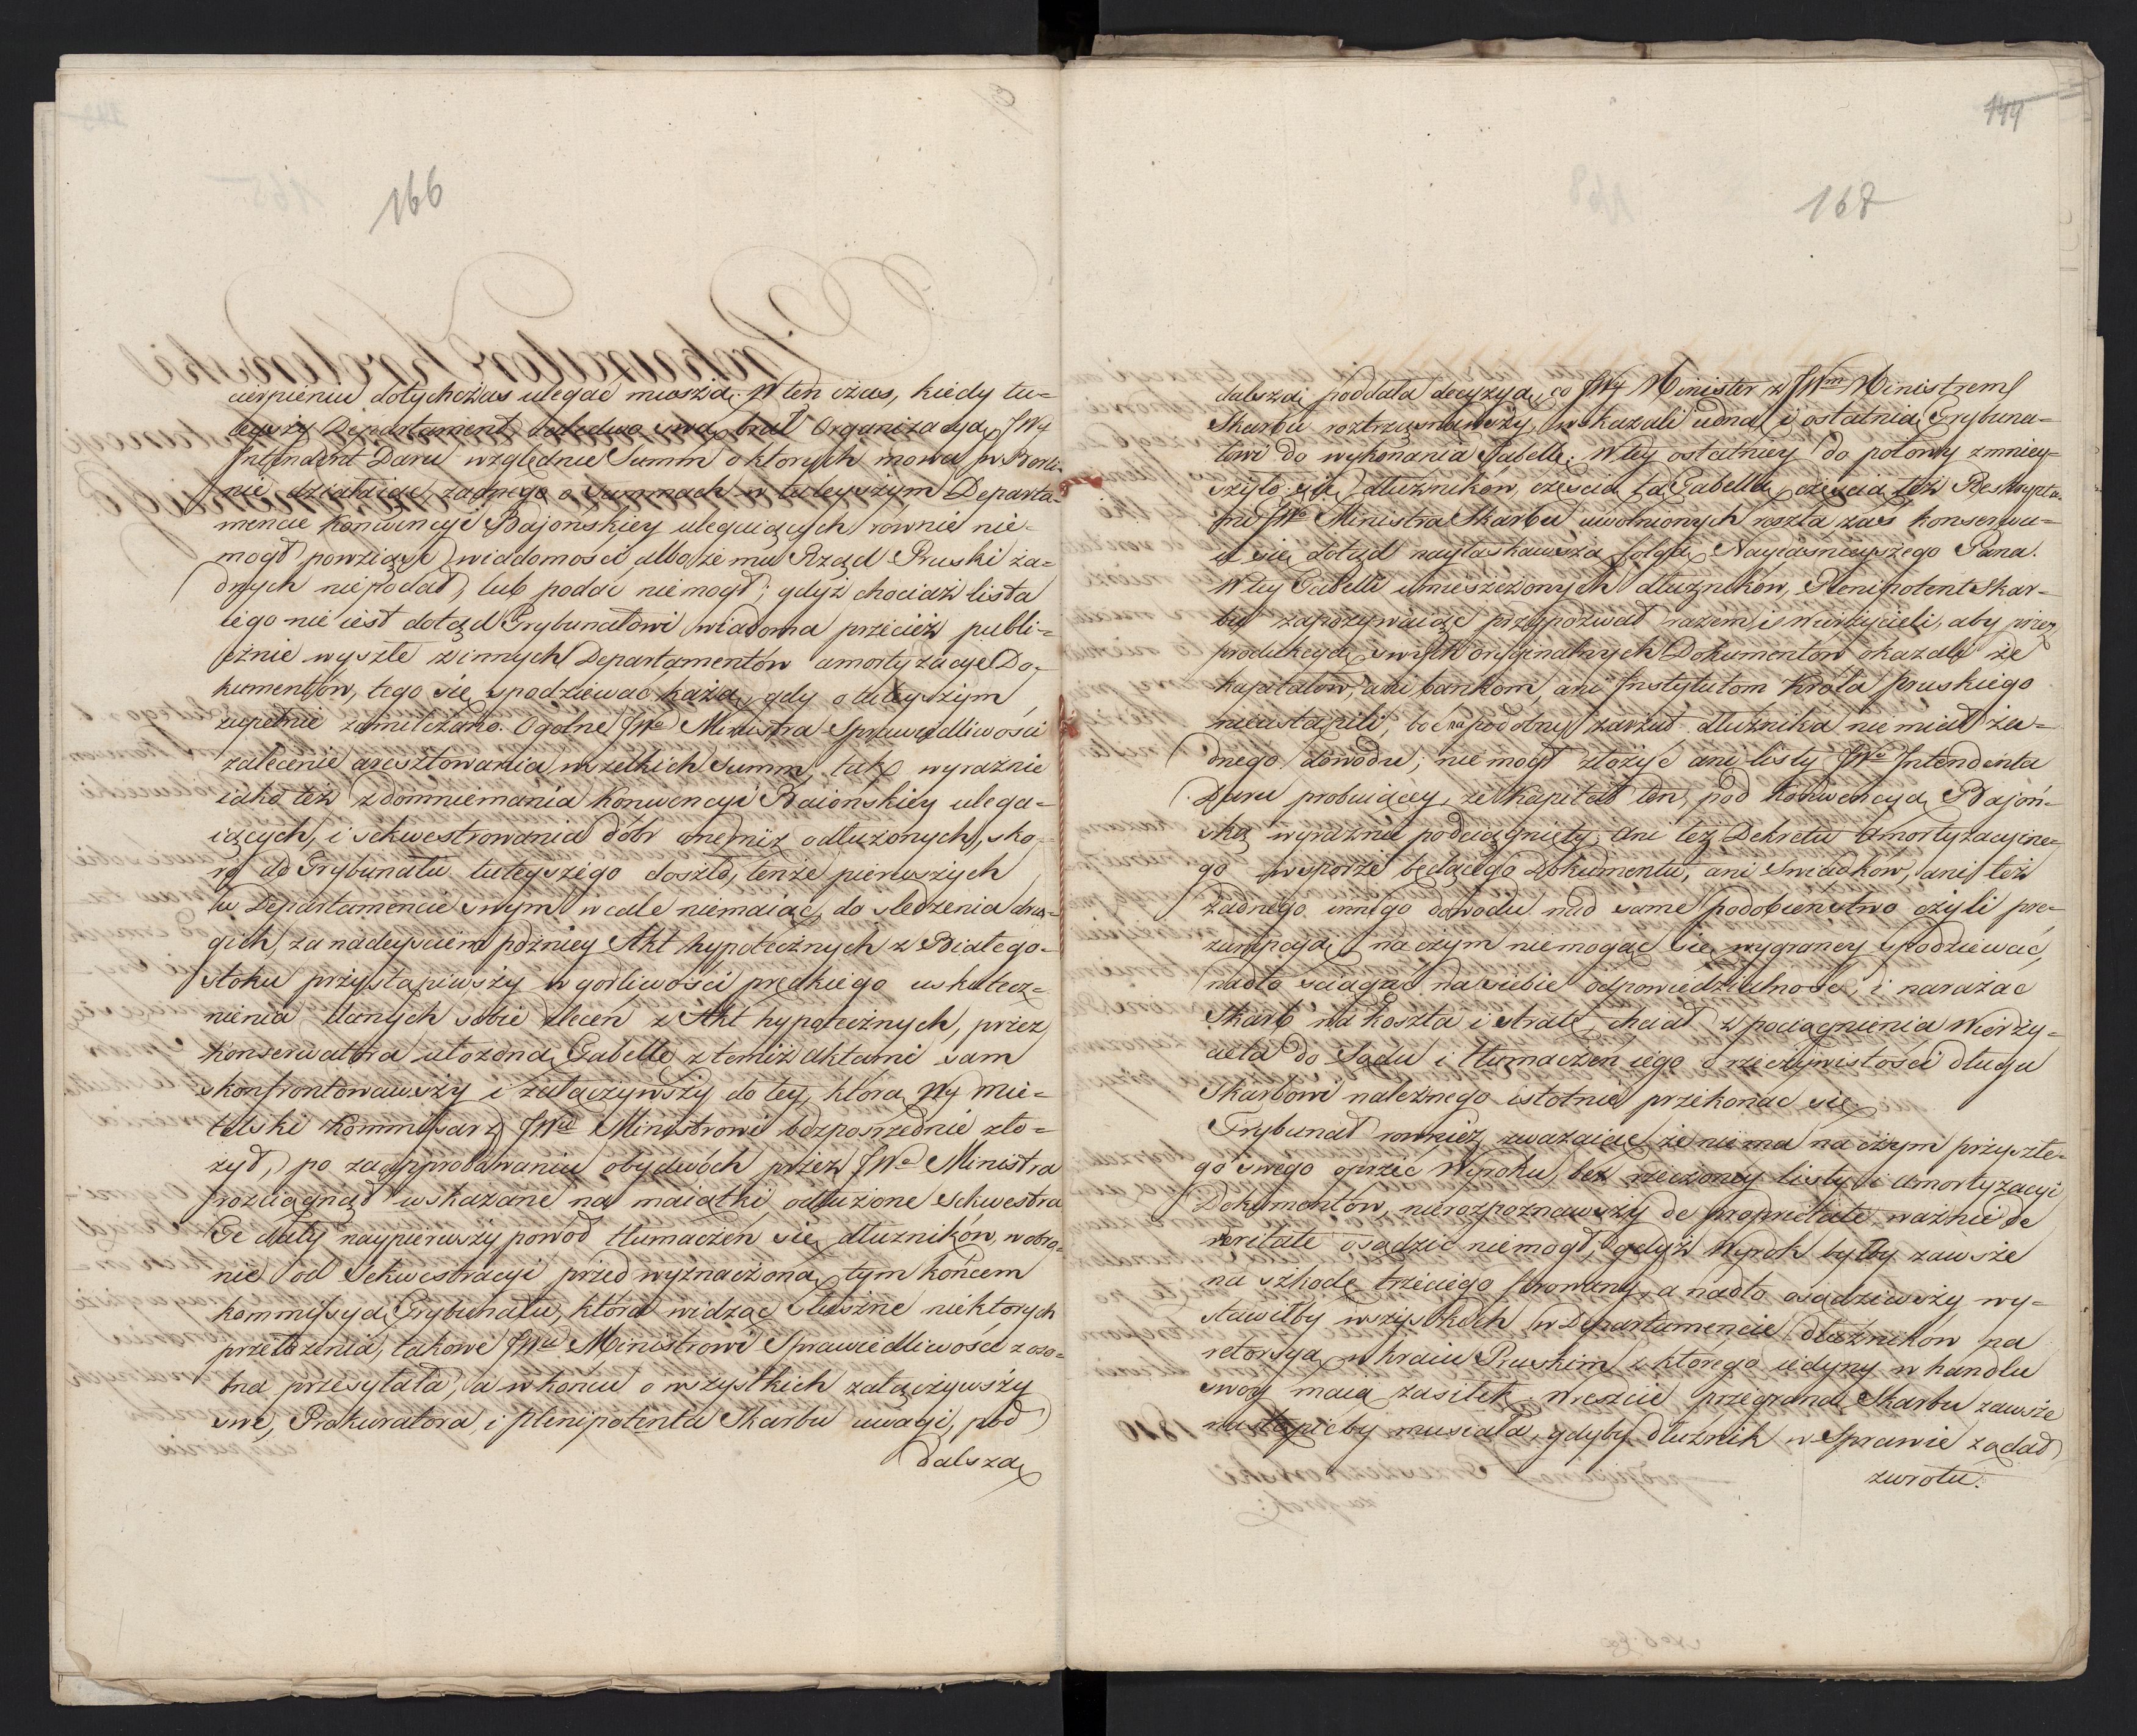 166
cierpieniu dotychczas ulegać muszą. W ten czas, kiedy tu-
teyszy Departament zaledwo swą brał Organizacyą, JWy
Intendent Daru względnie Summ o ktorych mowa, w Berli-
nie działaiąc, żadnego o Summach w tuteyszym Departa-
mencie Konwencyi Bajońskiey ulegaiących rownie nie-
mogł powziąść wiadomości albo że mu Rząd Pruski ża-
dnych niepodał, lub podać niemogł; gdyż chociaż lista
iego nie iest dotąd Trybunałowi wiadoma przecież publi-
cznie wyszłe z innych Departamentów amortyzacye Do-
kumentów, tego się spodziewać każą, gdy o tuteyszym
zupełnie zamilczano. Ogolne JWo Ministra Sprawiedliwości
zalecenie aresztowania wszelkich Summ, tak wyraznie
iako też z domniemania Konwencyi Baiońskiey ulega-
iących, i sekwestrowania dóbr onemiż odłużonych, sko-
ro do Trybunału tuteyszego doszło, tenże pierwszych
w Departamencie swym wcale niemaiąc, do sledzenia dru-
gich, za nadeysciem pozniey Akt hypotecznych z Białego-
stoku przystąpiwszy w gorliwości prędkiego uskutecz-
nienia danych sobie zleceń z Akt hypotecznych, przez
Konserwatora ułożoną Tabellę z temiż aktami sam
skonfrontowawszy i załączywszy do tey, którą Wy Mie-
telski Kommissarz JWu Ministrowi bezposrzednie zło-
żył, po zaapprobowaniu obydwóch przez JWo Ministra
rozciągnął wskazane na maiątki odłużone Sekwestra
Te dały naypierwszy powód tłumaczeń się dłuzników, w obro-
nie od Sekwestracyi przed wyznaczoną tym końcem
kommissyą Trybunału, która widząc słuszne niektorych
przełożenia, takowe JWu Ministrowi Sprawiedliwości z oso-
bna przesyłała, a w końcu o wszystkich załączywszy
swe, Prokuratora, i plenipotenta Skarbu uwagi, pod
dalszą
144
167
dalszą poddała decyzyą, co JWy Minister z JWm Ministrem
Skarbu roztrząsnąwszy, wskazali iedną i ostatnią Trybuna-
łowi do wykonania Tabellę. W tey ostatniey do połowy zmniey-
szyło się dłużników, częścią tą Tabellą, częscią też Reskrypta-
mi JWo Ministra Skarbu uwolnionych reszta zaś konserwu-
ie się dotąd nayłaskawszą folgą Nayiasnieyszego Pana.
W tey Tabelli umieszczonych dłużników, Plenipotent Skar-
bu zapozywaiąc przypozwał razem i wierzycieli, aby przez
produkcyą swych oryginalnych Dokumentów okazali że
kapitałów, ani bankom, ani Instytutom Króla pruskiego
nieustąpili, bo na podobny zarzut dłużnika nie miał ża-
dnego dowodu; nie mogł złożyć ani listy JWo Intendenta
Daru probuiącey, że kapitał ten, pod Konwencyą Bajoń-
ską wyraznie podciągnięty, ani też Dekretu amortyzacyine-
go w sporze będącego Dokumentu, ani swiadkow, ani też
żadnego innego dowodu nad same podobieństwo czyli pre-
zumpcyą, na czym niemogąc się wygraney spodziewać,
nadto sciągać na siebie odpowiedzialność, i narażać
Skarb na koszta i stratę, chciał z pociągnienia Wierzy-
ciela do Sądu i tłumaczeń iego o rzeczywistości długu
Skarbowi należnego istotnie przekonać się.
Trybunał rownież zważaiąc że nie ma na czym przyszłe-
go swego oprzeć Wyroku, bez rzeczoney listy i amortyzacyi
Dokumentów, nierozpoznawszy de proprietate, ważnie de
veritate osądzić niemogł, gdyż Wyrok byłby zawsze
na szkodę trzeciego ferowany, a nadto osądziwszy wy-
stawiłby wszystkich w Departamencie dłużników na
retorsyą w kraiu Pruskim z ktorego iedyny w handlu
swoy maią zasiłek. Wreszcie przegrana Skarbu zawsze
nastąpićby musiała, gdyby dłużnik w Sprawie żądał
zwrotu.